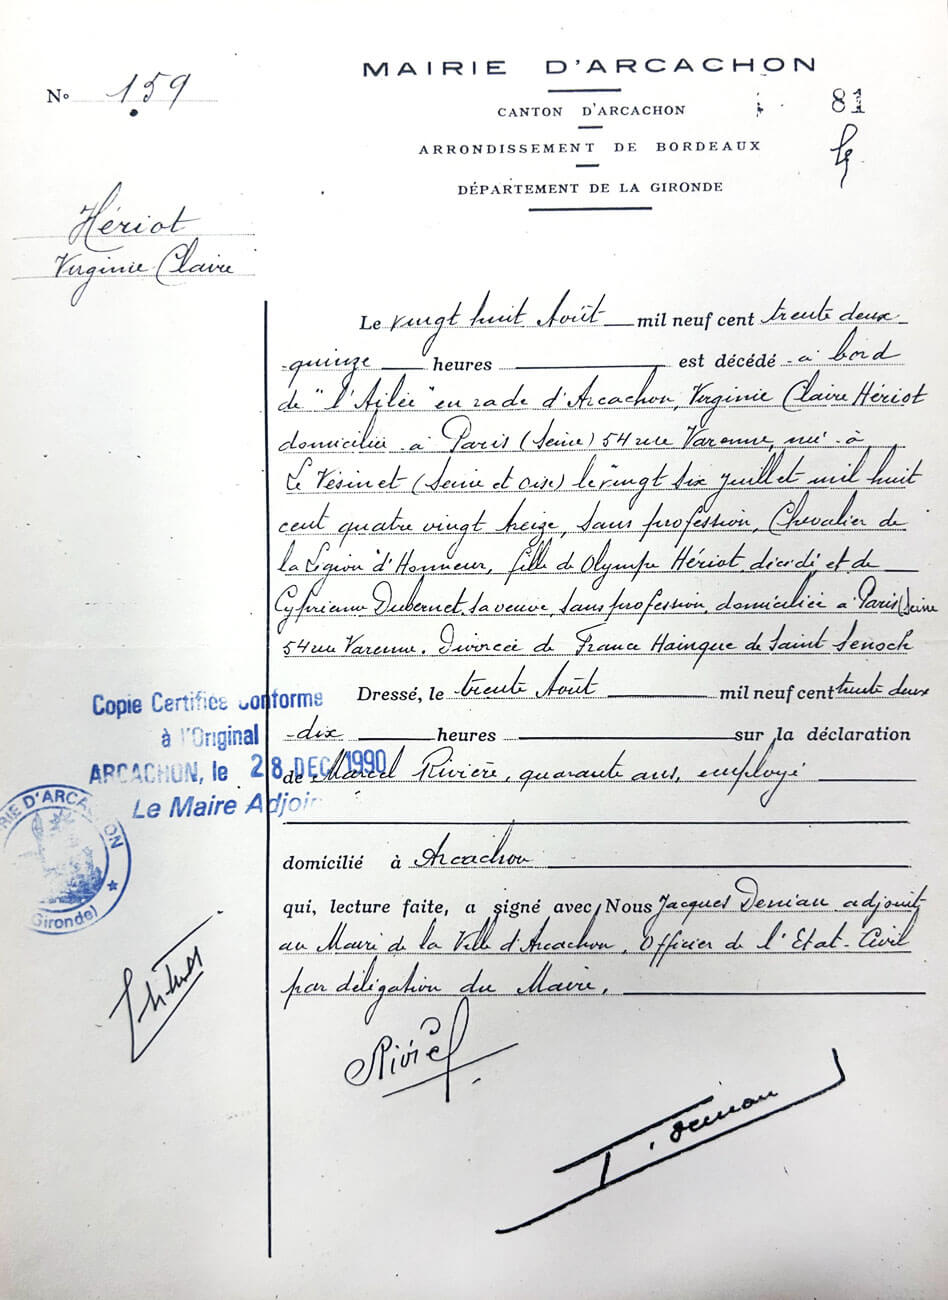 MAIRIE D'ARCACHON
N° 159
CANTON D'ARCACHON
81
ARRONDISSEMENT DE BORDEAUX
DÉPARTEMENT DE LA GIRONDE
Hériot
Virginie Claire
Le vingt huit Août mil neuf cent trente deux
quinze heures est décédé à bord
de "l'Ailée" en rade d'Arcachon, Virginie Claire Hériot
domiciliée à Paris (Seine) 54 rue Varenne, née à
Le Vésinet (Seine et Oise) le vingt six juillet mil huit
cent quatre vingt treize, sans profession, Chevalier de
la Légion d'Honneur, fille de Olympe Hériot, décédé et de
Cyprienne Dubernet, sa veuve, sans profession, domiciliée à Paris (Seine
54 rue Varenne. Divorcée de France Hainque de Saint Senoch
Dressé, le trente Août mil neuf cent trente deux
dix heures sur la déclaration
de Marcel Rivière, quarante ans, employé
domicilié à Arcachon
qui, lecture faite, a signé avec Nous Jacques Deniau adjoint
au Maire de la Ville d'Arcachon, Officier de l'Etat-Civil
par délégation du Maire.
Copie Certifiée Conforme
à l'Original
ARCACHON, le 28 DEC 1990
Le Maire Adjoin
RIE D'ARCACHON
(Gironde)
Rivière
Deniau